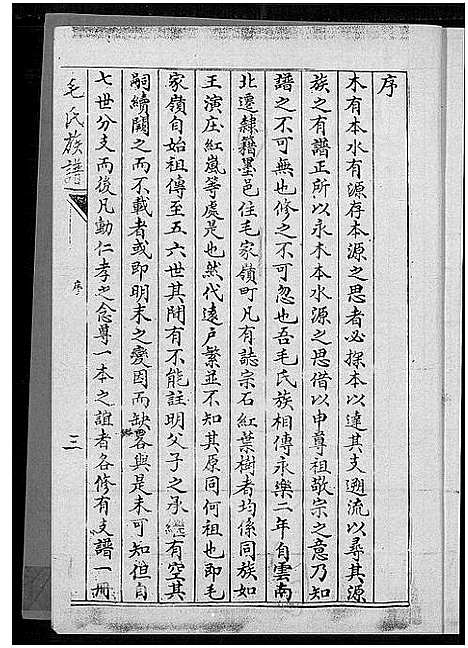 序
木有本水有源存本源之思者必探本以達其支遡流以尋其源
族之有譜正所以永木本水源之思借以申尊祖敬宗之意乃知
譜之不可無也修之不可忽也吾毛氏族相傳永樂二年自雲南
北遷隸籍墨邑住毛家嶺町凡有誌宗石紅葉樹者均係同族如
王演庄紅嵐等處是也然代遠户繁並不知其原同何祖也即毛
家嶺自始祖傳至五六世其閒有不能註明父子之承繼有空其
嗣續闕之而不載者或即明末之變因而缺畧與是未可知但自
七世分支而後凡動仁孝之念尊一本之誼者各修有支譜一冊
毛氏族譜
序
三